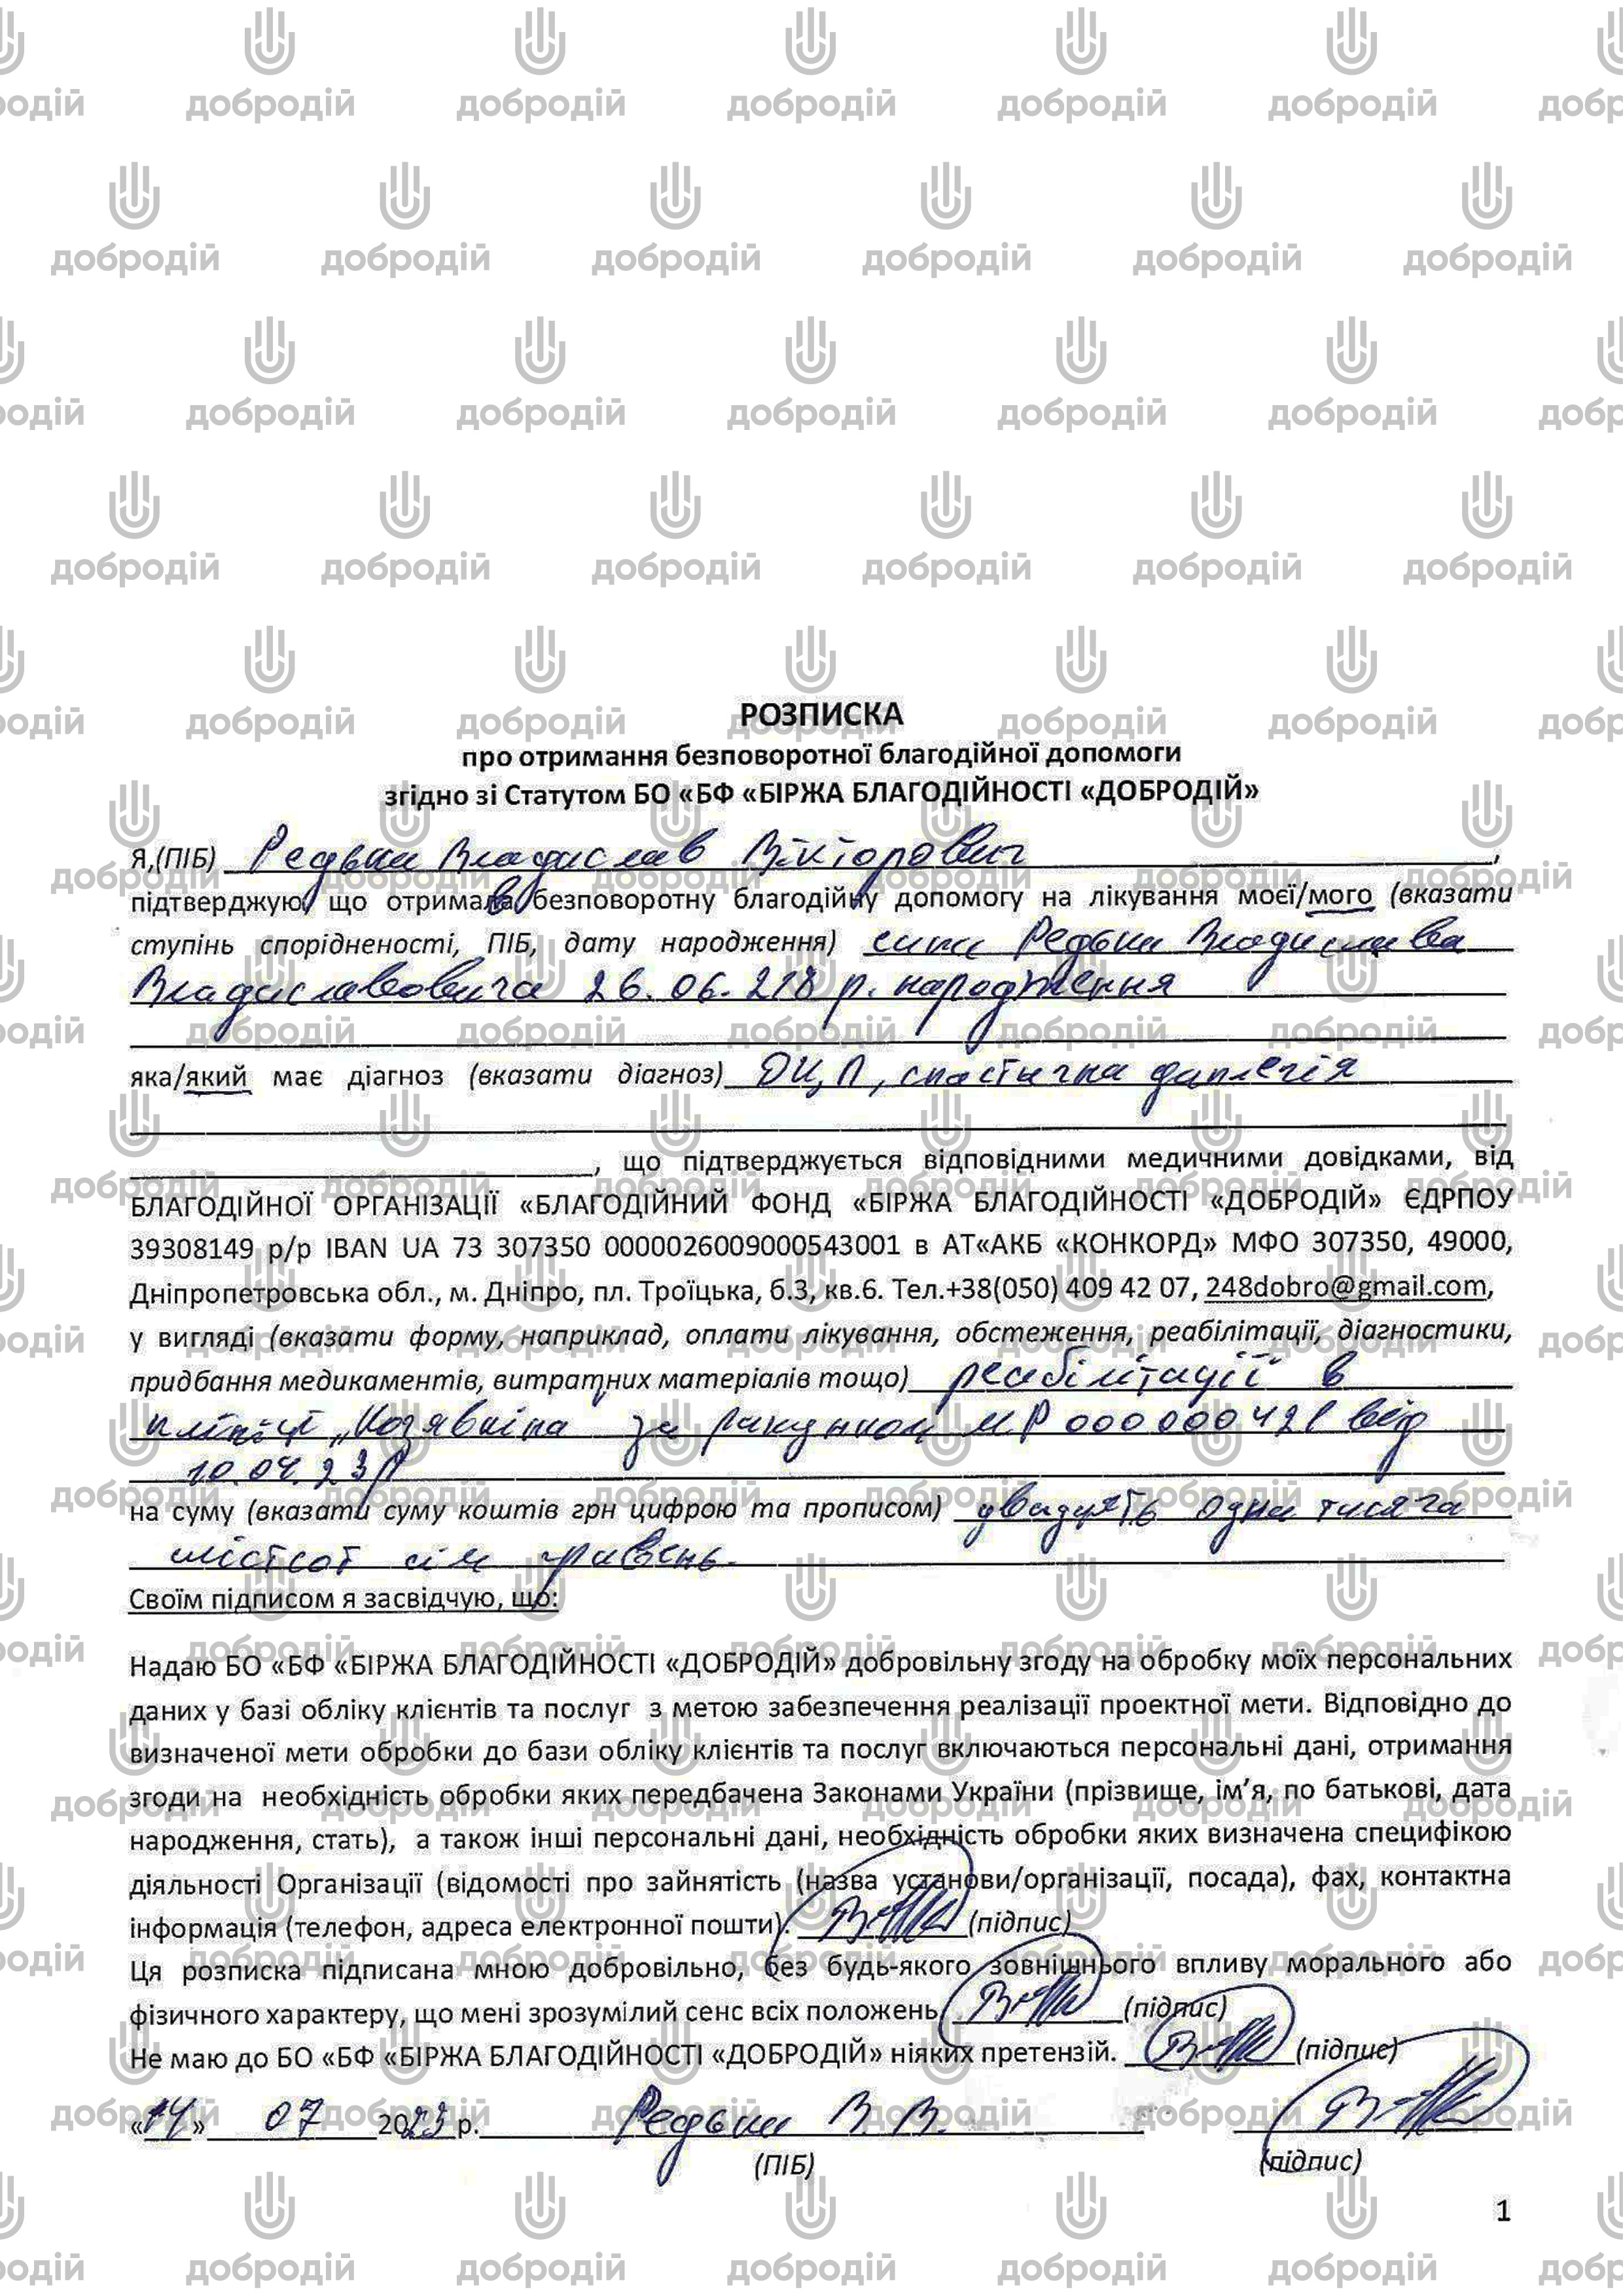 РОЗПИСКА
про отримання безповоротної благодійної допомоги
згідно зі Статутом БО «БФ «БІРЖА БЛАГОДІЙНОСТІ «ДОБРОДІЙ»
Я,(ПІБ) Редька Владислав Вікторович,
підтверджую, що отримав безповоротну благодійну допомогу на лікування моєї/мого (вказати
ступінь спорідненості, ПІБ, дату народження) сина Редька Владислава
Владиславовича 26.06.218 р. народження
яка/який має діагноз (вказати діагноз) ДЦП, спастична диплегія
, що підтверджується відповідними медичними довідками, від
БЛАГОДІЙНОЇ ОРГАНІЗАЦІЇ «БЛАГОДІЙНИЙ ФОНД «БІРЖА БЛАГОДІЙНОСТІ «ДОБРОДІЙ» ЄДРПОУ
39308149 р/р IBAN UA 73 307350 0000026009000543001 в АТ«АКБ «КОНКОРД» МФО 307350, 49000,
Дніпропетровська обл., м. Дніпро, пл. Троїцька, б.3, кв.6. Тел.+38(050) 409 42 07, 248dobro@gmail.com,
у вигляді (вказати форму, наприклад, оплати лікування, обстеження, реабілітації, діагностики,
придбання медикаментів, витратних матеріалів тощо) реабілітації в
клініці „Козявкіна за рахунком МР 000000421 від
10.04.23р
на суму (вказати суму коштів грн цифрою та прописом) двадцять одна тисяча
шістсот сім гривень.
Своїм підписом я засвідчую, що:
Надаю БО «БФ «БІРЖА БЛАГОДІЙНОСТІ «ДОБРОДІЙ» добровільну згоду на обробку моїх персональних
даних у базі обліку клієнтів та послуг з метою забезпечення реалізації проектної мети. Відповідно до
визначеної мети обробки до бази обліку клієнтів та послуг включаються персональні дані, отримання
згоди на необхідність обробки яких передбачена Законами України (прізвище, ім’я, по батькові, дата
народження, стать), а також інші персональні дані, необхідність обробки яких визначена специфікою
діяльності Організації (відомості про зайнятість (назва установи/організації, посада), фах, контактна
інформація (телефон, адреса електронної пошти). (підпис)
Ця розписка підписана мною добровільно, без будь-якого зовнішнього впливу морального або
фізичного характеру, що мені зрозумілий сенс всіх положень (підпис)
Не маю до БО «БФ «БІРЖА БЛАГОДІЙНОСТІ «ДОБРОДІЙ» ніяких претензій. (підпис)
«14» 07 2023 р. Редька В. В.
(ПІБ) (підпис)
1